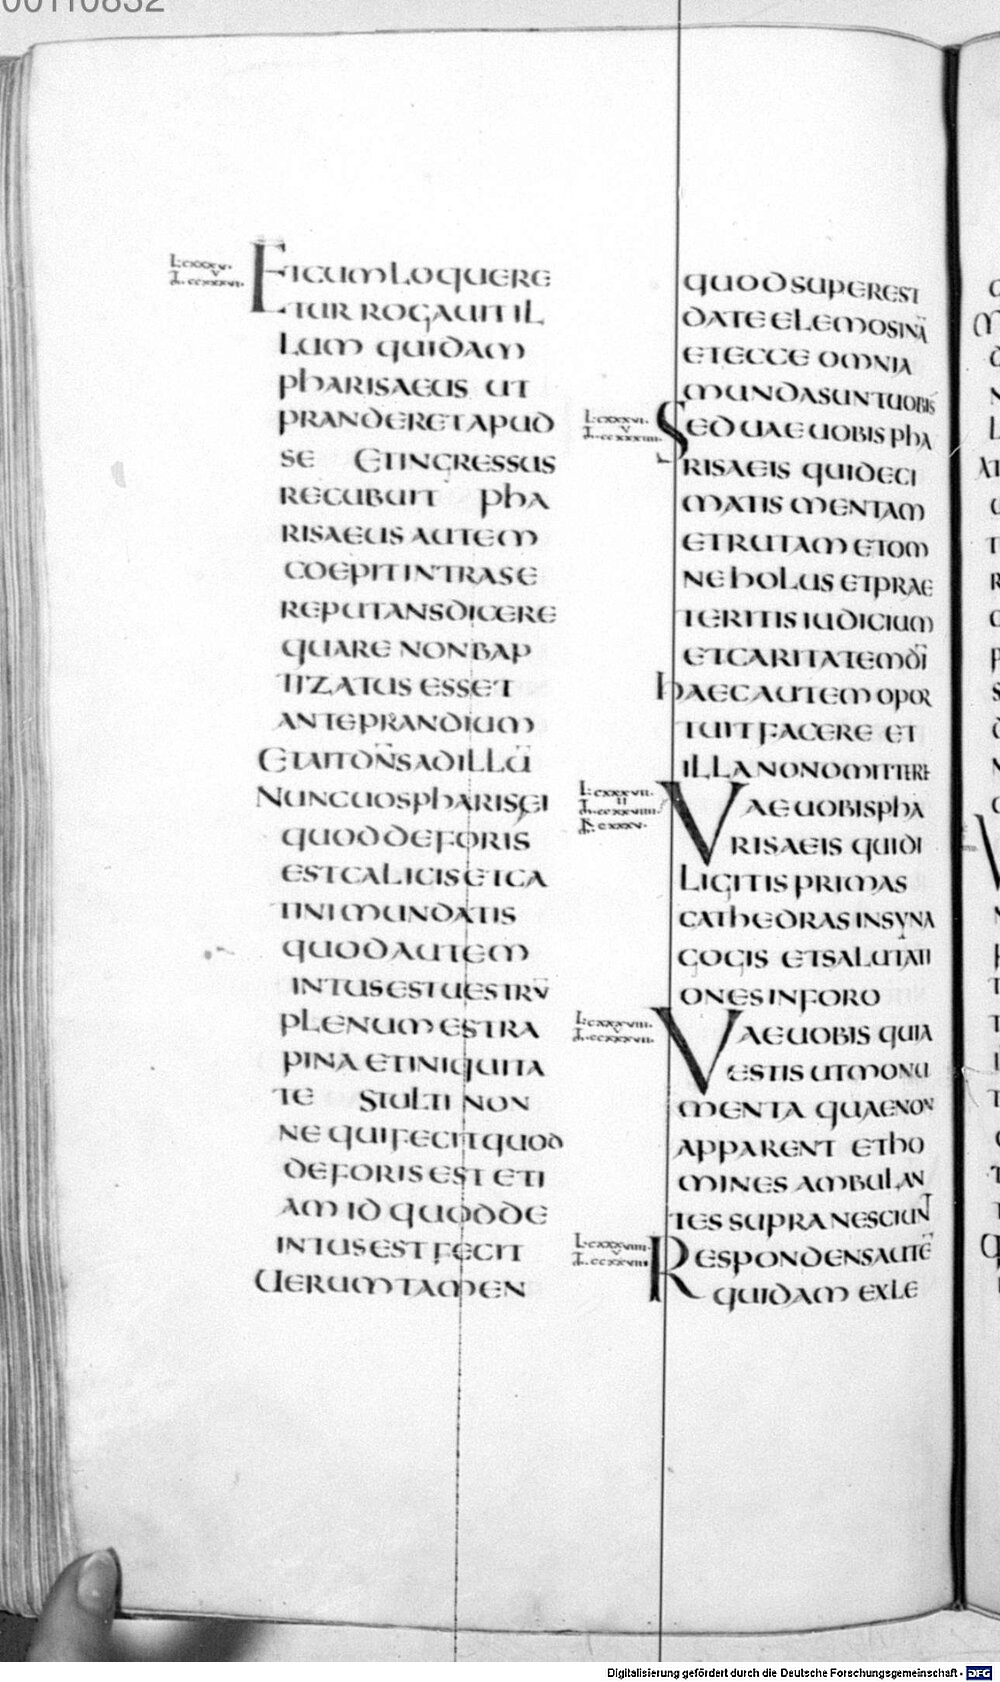 00110832
L·cxxxv·
V
I·ccxxxvi·
Et cum loquere
tur rogauit il
lum quidam
pharisaeus ut
pranderet apud
se Et ingressus
recubuit pha
risaeus autem
coepit intra se
reputans dicere
quare non bap
tizatus esset
ante prandium
Et ait dn̄s ad illū
Nunc uos pharisei
quod deforis
est calicis et ca
tini mundatis
quod autem
intus est uestrū
plenum est ra
pina et iniquita
te Stulti non
ne qui fecit quod
deforis est eti
am id quod de
intus est fecit
Uerum tamen
quod superest
date elemosinā
et ecce omnia
munda sunt uobis
L·cxxxvi·
V
Sed uae uobis pha
risaeis qui deci
matis mentam
et rutam et om
ne holus et prae
teritis iudicium
et caritatem dī
haec autem opor
tuit facere et
illa non omittere
L·cxxxvii·
II
Vae uobis pha
risaeis qui di
ligitis primas
cathedras in syna
gogis et salutati
ones in foro
L·cxxxviii·
V
Vae uobis quia
estis ut monu
menta quae non
apparent et ho
mines ambulan
tes supra nesciunt
L·cxxxviiii·
V
Respondens autē
quidam ex le
Digitalisierung gefördert durch die Deutsche Forschungsgemeinschaft - DFG